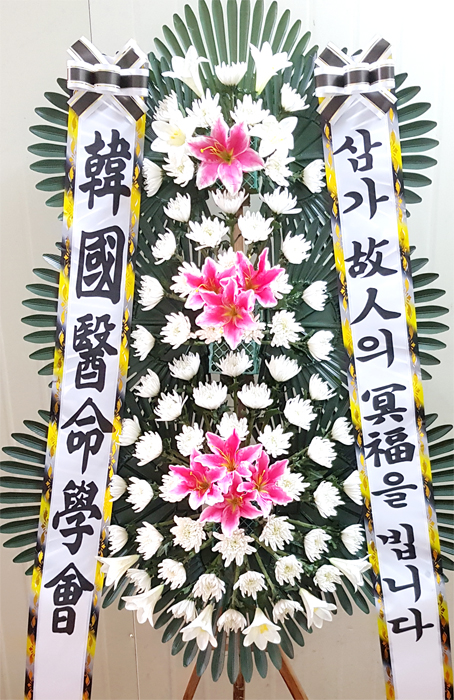 삼가 故人의 冥福을 빕니다
韓國醫命學會